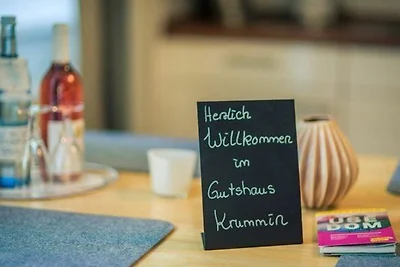 Herzlich
Willkommen
im
Gutshaus
Krummin
USE
DOM